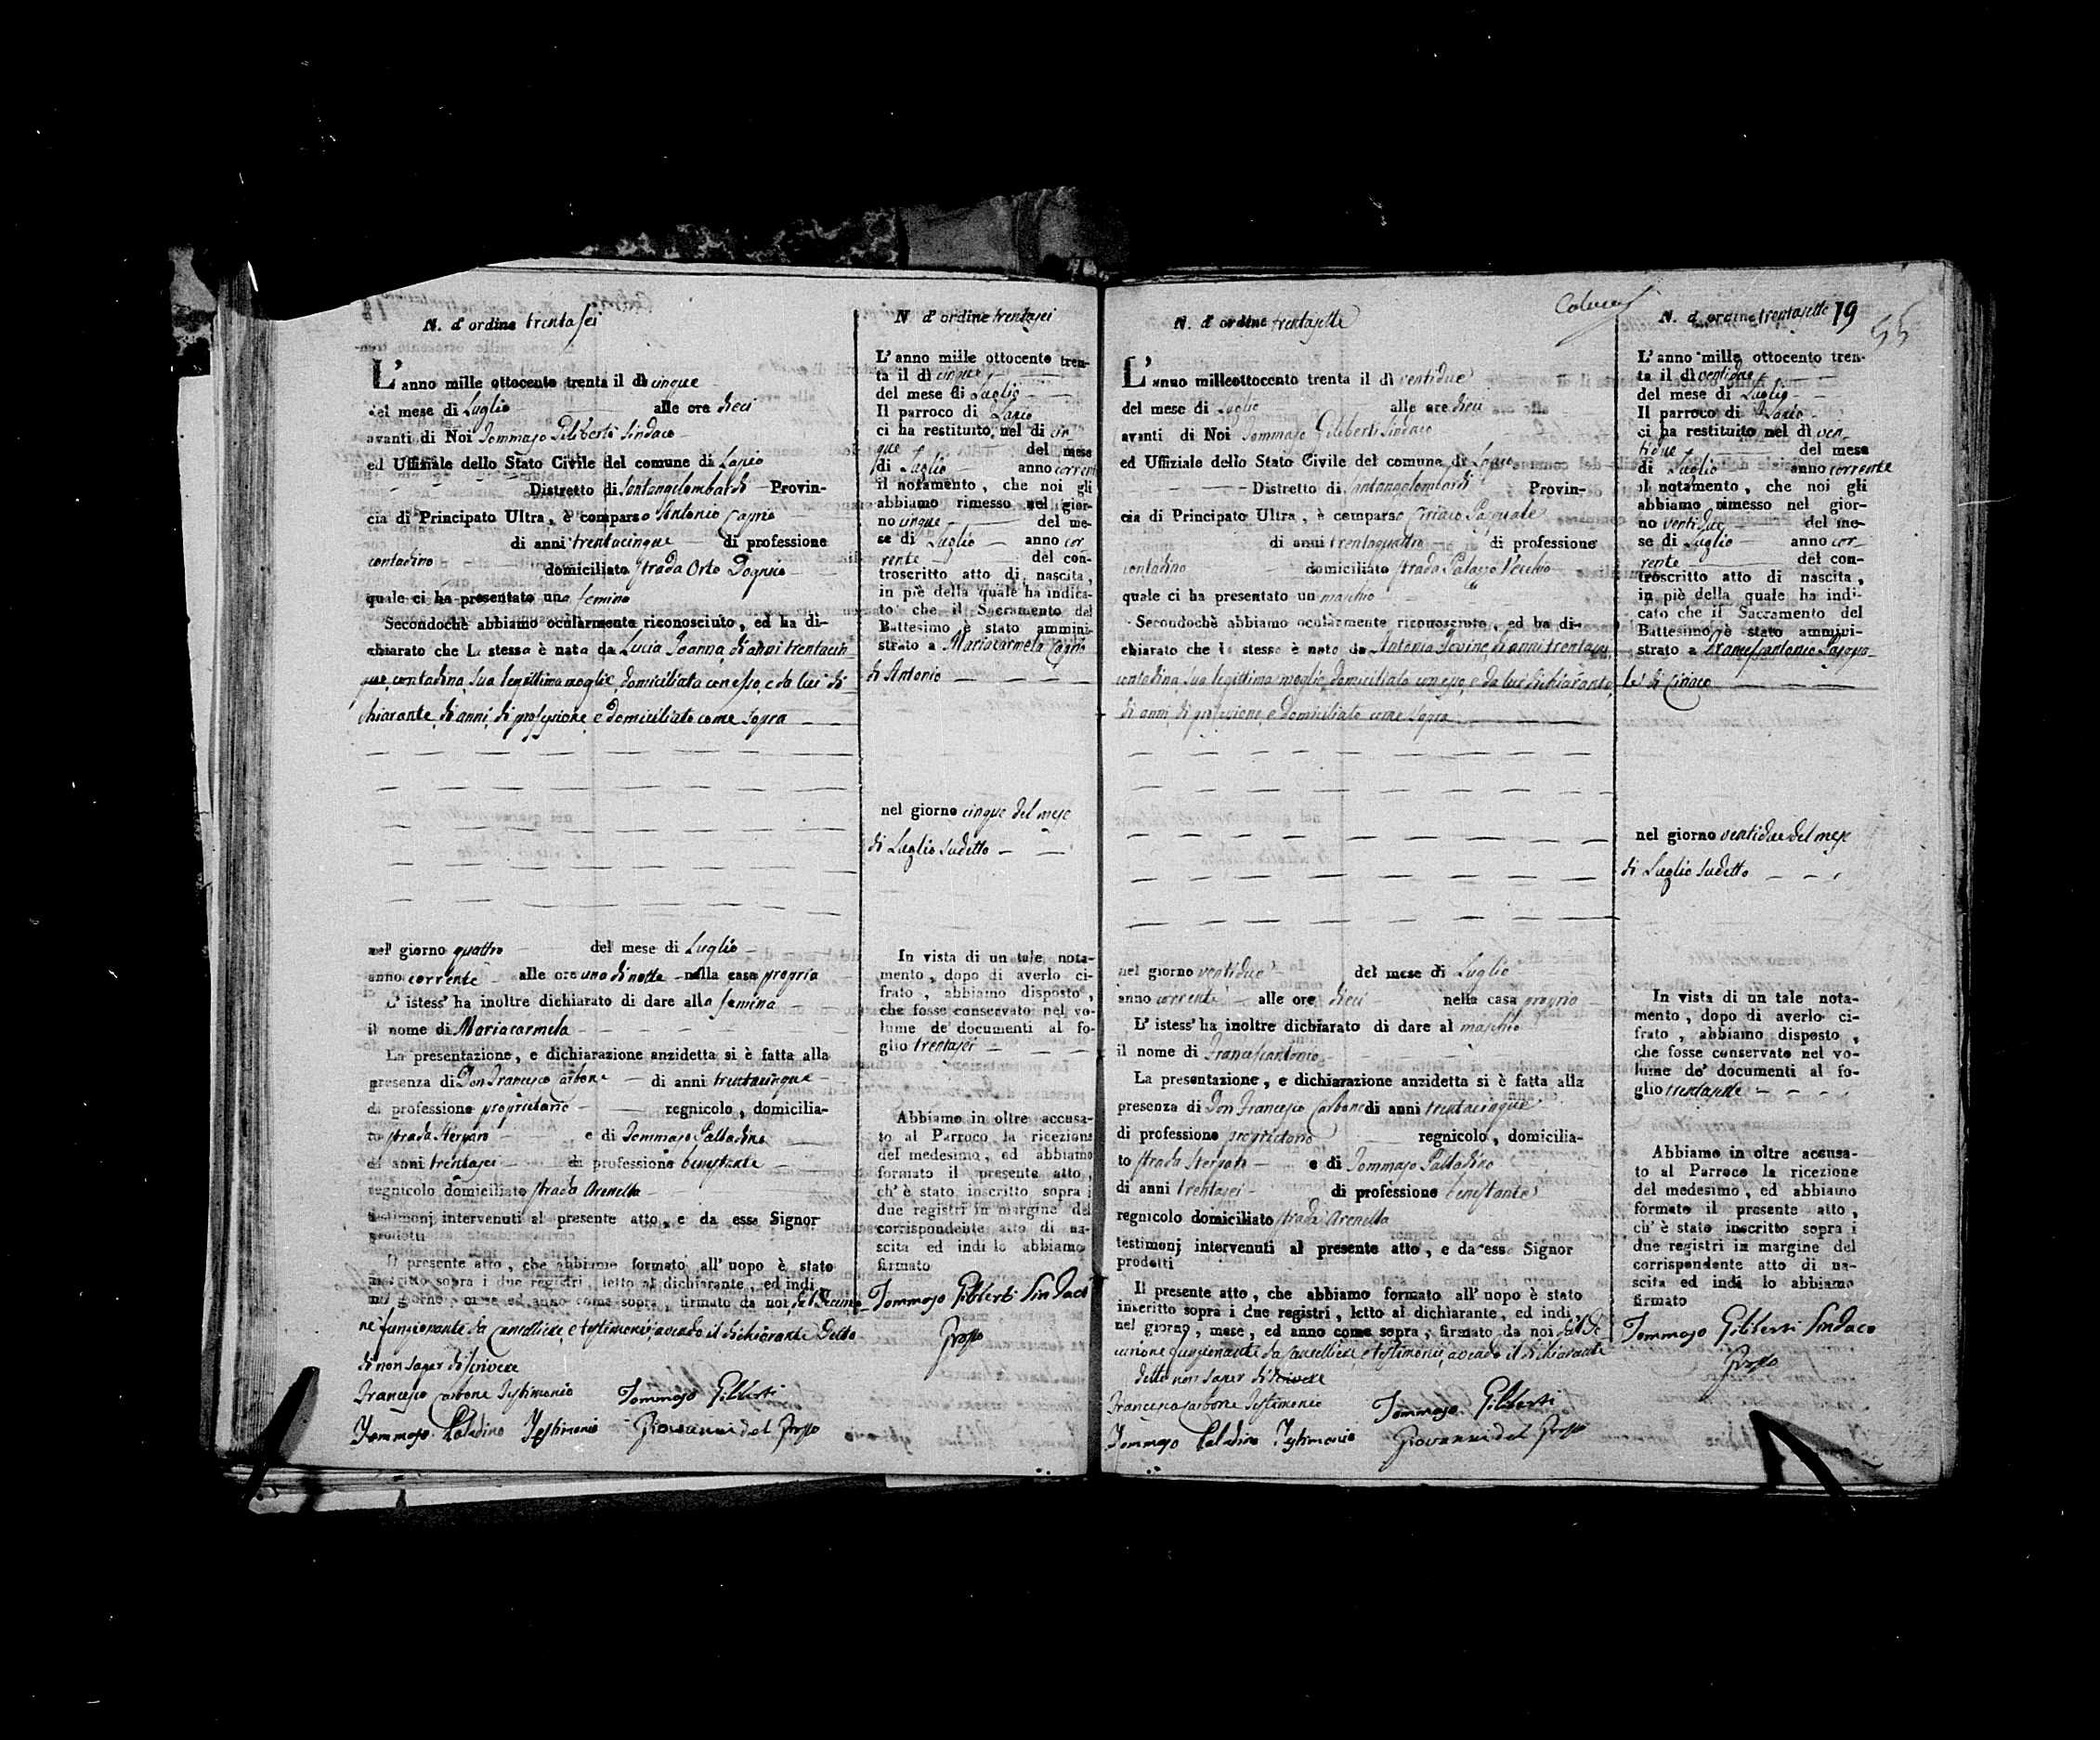 N. d'ordine trentasei
L'anno mille ottocento trenta il dì cinque
del mese di Luglio alle ore dieci
avanti di Noi Tommaso Giliberti Sindaco
ed Uffiziale dello Stato Civile del comune di Lapio
Distretto di Santangelombardi Provin-
cia di Principato Ultra, è comparso Antonio Caprio
di anni trentacinque di professione
contadino domiciliato strada Orto
quale ci ha presentato una femina
Secondochè abbiamo ocularmente riconosciuto, ed ha di-
chiarato che la stessa è nata da Lucia Ioanna, di anni trentacin
que, contadina, sua legittima moglie, domiciliata con esso, e da lui di
chiarante, di anni, di professione, e domiciliato come sopra
nel giorno quattro del mese di Luglio
anno corrente alle ore una di notte nella casa propria
L'istess' ha inoltre dichiarato di dare alla femina
il nome di Mariacarmela
La presentazione, e dichiarazione anzidetta si è fatta alla
presenza di Don Francesco Carbone di anni trentacinque
di professione proprietario regnicolo, domicilia-
to strada e di Tommaso Palladino
di anni trentasei di professione benestante
regnicolo domiciliato strada Arenella
testimonj intervenuti al presente atto, e da esso Signor
prodotti
Il presente atto, che abbiamo formato all' uopo è stato
inscritto sopra i due registri, letto al dichiarante, ed indi
nel giorno, mese ed anno come sopra, firmato da noi, dal Decurio
ne funzionante da Cancelliere, e testimonj, avendo il dichiarante detto
di non saper di scrivere
Francesco Carbone Testimonio Tommaso Giliberti
Tommaso Paladino Testimonio Giovanni del Grosso
N. d'ordine trentasei
L'anno mille ottocento tren-
ta il dì cinque
del mese di Luglio
Il parroco di Lapio
ci ha restituito nel dì cin-
que del mese
di Luglio anno corrente
il notamento, che noi gli
abbiamo rimesso nel gior-
no cinque del me-
se di Luglio anno cor
rente del con-
troscritto atto di nascita,
in piè della quale ha indica-
to che il Sacramento del
Battesimo è stato ammini-
strato a Mariacarmela Caprio
di Antonio
nel giorno cinque del mese
di Luglio sudetto
In vista di un tale nota-
mento, dopo di averlo ci-
frato, abbiamo disposto,
che fosse conservato nel vo-
lume de' documenti al fo-
glio trentasei
Abbiamo in oltre accusa-
to al Parroco la ricezione
del medesimo, ed abbiamo
formato il presente atto,
ch'è stato inscritto sopra i
due registri in margine del
corrispondente atto di na-
scita ed indi lo abbiamo
firmato
Tommaso Giliberti Sindaco
Grosso
N. d'ordine trentasette
L'anno milleottocento trenta il dì ventidue
del mese di Luglio alle ore dieci
avanti di Noi Tommaso Giliberti Sindaco
ed Uffiziale dello Stato Civile del comune di Lapio
Distretto di Santangelombardi Provin-
cia di Principato Ultra, è comparso Ciriaco Pasquale
di anni trentaquattro di professione
contadino domiciliato strada Palazzo Vecchio
quale ci ha presentato un maschio
Secondochè abbiamo ocularmente riconosciuto, ed ha di-
chiarato che lo stesso è nato da Antonia Iovine di anni trentasei
contadina sua legittima moglie, domiciliata con esso, e da lui dichiarante,
di anni, di professione, e domiciliato come sopra
nel giorno ventidue del mese di Luglio
anno corrente alle ore dieci nella casa propria
L'istess' ha inoltre dichiarato di dare al maschio
il nome di Francescantonio
La presentazione, e dichiarazione anzidetta si è fatta alla
presenza di Don Francesco Carbone di anni trentacinque
di professione proprietario regnicolo, domicilia-
to strada e di Tommaso Palladino
di anni trentasei di professione benestante
regnicolo domiciliato strada Arenella
testimonj intervenuti al presente atto, e da esso Signor
prodotti
Il presente atto, che abbiamo formato all' uopo è stato
inscritto sopra i due registri, letto al dichiarante, ed indi
nel giorno, mese, ed anno come sopra, firmato da noi dal De
curione funzionante da Cancelliere, e testimonj, avendo il dichiarante
detto non saper di scrivere
Francesco Carbone Testimonio Tommaso Giliberti
Tommaso Paladino Testimonio Giovanni del Grosso
N. d'ordine trentasette 19
55
L'anno mille ottocento tren-
ta il dì ventidue
del mese di Luglio
Il parroco di Lapio
ci ha restituito nel dì ven-
tidue del mese
di Luglio anno corrente
il notamento, che noi gli
abbiamo rimesso nel gior-
no ventidue del me-
se di Luglio anno cor-
rente del con-
troscritto atto di nascita,
in piè della quale ha indi-
cato che il Sacramento del
Battesimo è stato ammini-
strato a Francescantonio Pasqua-
le di Ciriaco
nel giorno ventidue del mese
di Luglio sudetto
In vista di un tale nota-
mento, dopo di averlo ci-
frato, abbiamo disposto,
che fosse conservato nel vo-
lume de' documenti al fo-
glio trentasette
Abbiamo in oltre accusa-
to al Parroco la ricezione
del medesimo, ed abbiamo
formato il presente atto,
ch'è stato inscritto sopra i
due registri in margine del
corrispondente atto di na-
scita ed indi lo abbiamo
firmato
Tommaso Giliberti Sindaco
Grosso